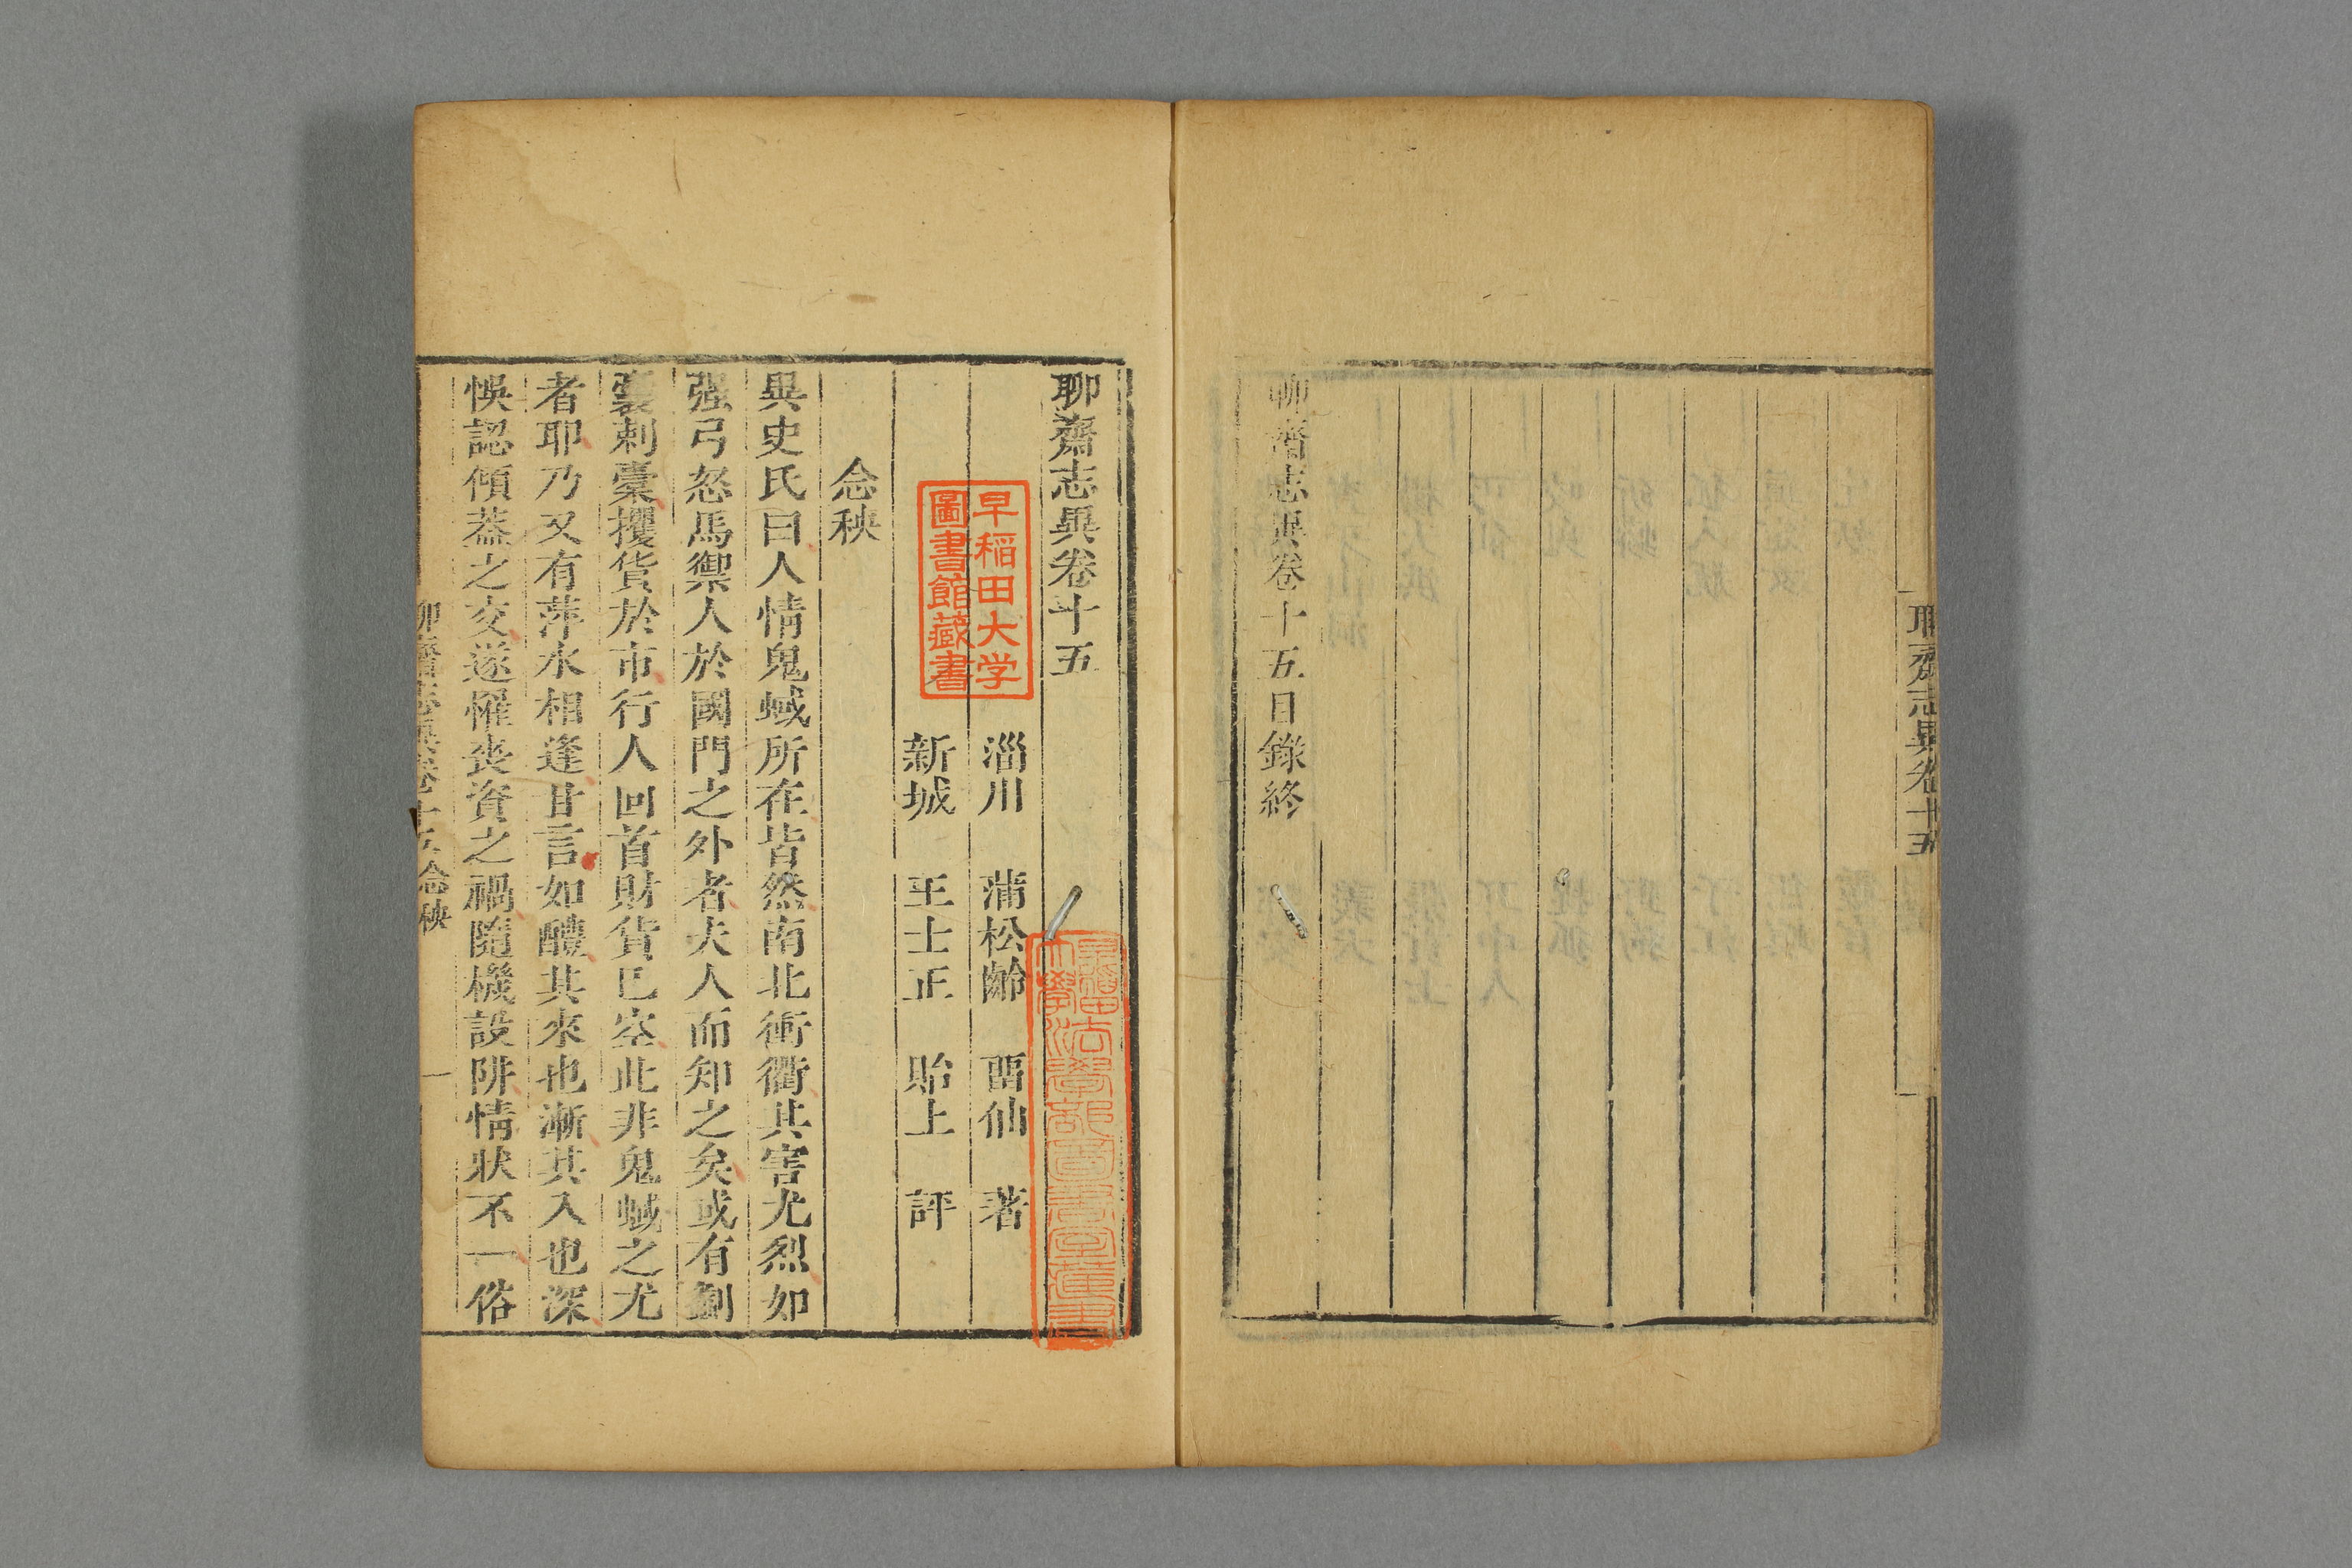 聊齋志異卷十五
聊齋志異卷十五目錄終
聊齋志異卷十五
淄川　蒲松齡　畱仙　著
新城　王士正　貽上　評
念秧
異史氏曰人情鬼蜮所在皆然南北衝衢其害尤烈如
强弓怒馬禦人於國門之外者夫人而知之矣或有劙
囊刺橐攫貨於市行人回首財貨已空此非鬼蜮之尤
者耶乃又有萍水相逢甘言如醴其來也漸其入也深
悞認傾蓋之交遂罹喪資之禍隨機設阱情狀不一俗
聊齋志異卷十五念秧　一
早稲田大学
圖書館藏書